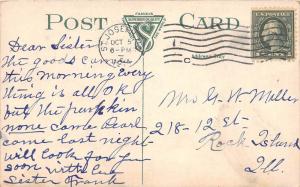 POST CARD
ST. JOSEPH
OCT 5
6-PM
MO.
U.S. POSTAGE
Dear Sister
the goods came
this morning Every
thing is all OK
but the pumpkin
none come Pearl
come last night
will look for you
soon with love
Sister Frank
Mrs G. W. Miller
218-12 St-
Rock Island
Ill.